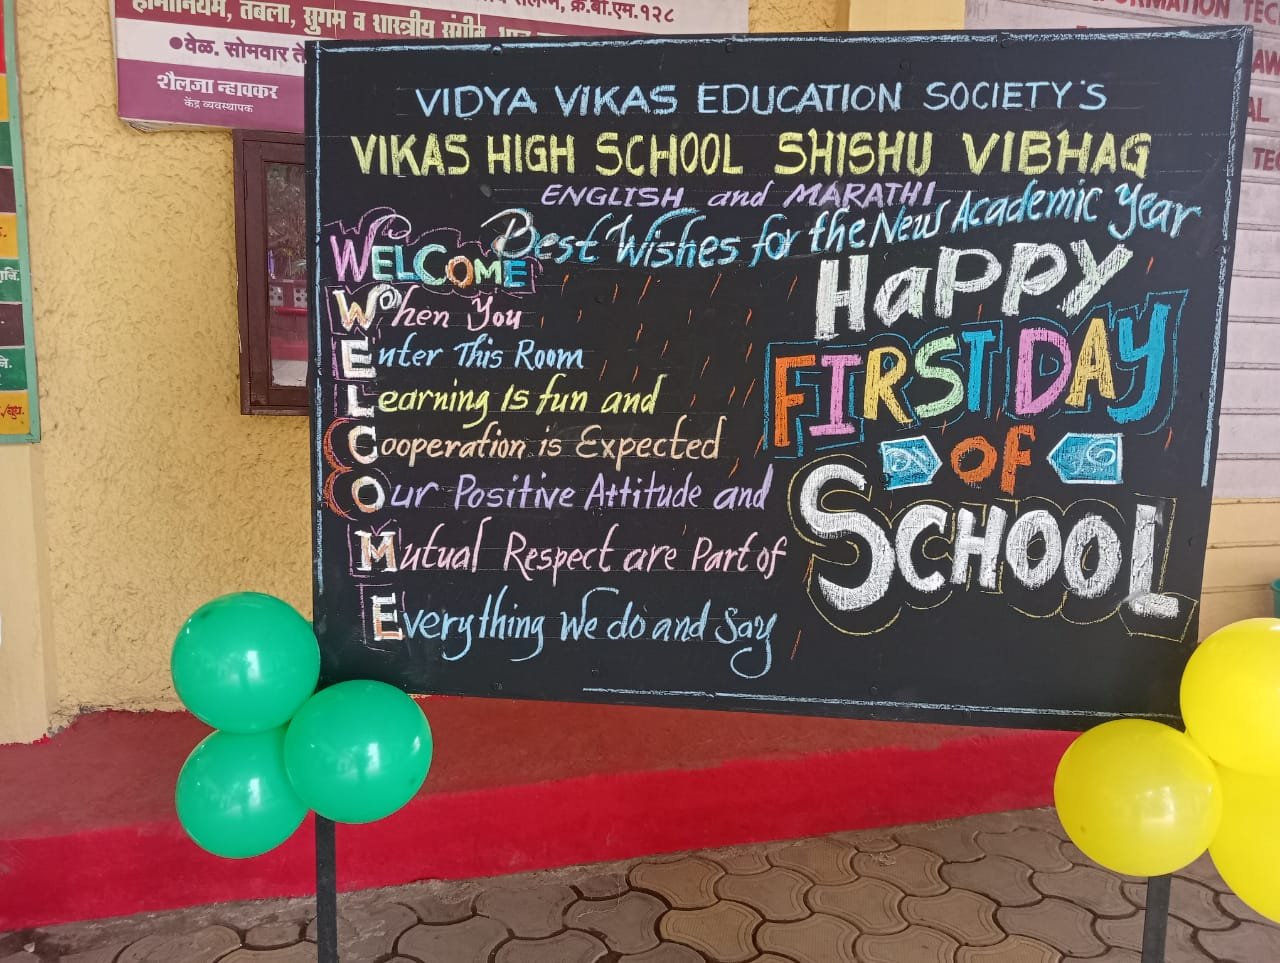 हार्मोनियम, तबला, सुगम व शास्त्रीय संगीत,
क्र.बी.एम.१२८
●वेळ. सोमवार ते
शैलजा न्हावकर
केंद्र व्यवस्थापक
VIDYA VIKAS EDUCATION SOCIETY'S
VIKAS HIGH SCHOOL SHISHU VIBHAG
ENGLISH and MARATHI
Best Wishes for the New Academic Year
WELCOME
When You
Enter This Room
Learning is fun and
Cooperation is Expected
Our Positive Attitude and
Mutual Respect are Part of
Everything We do and Say
Happy
FIRST DAY
OF
SCHOOL